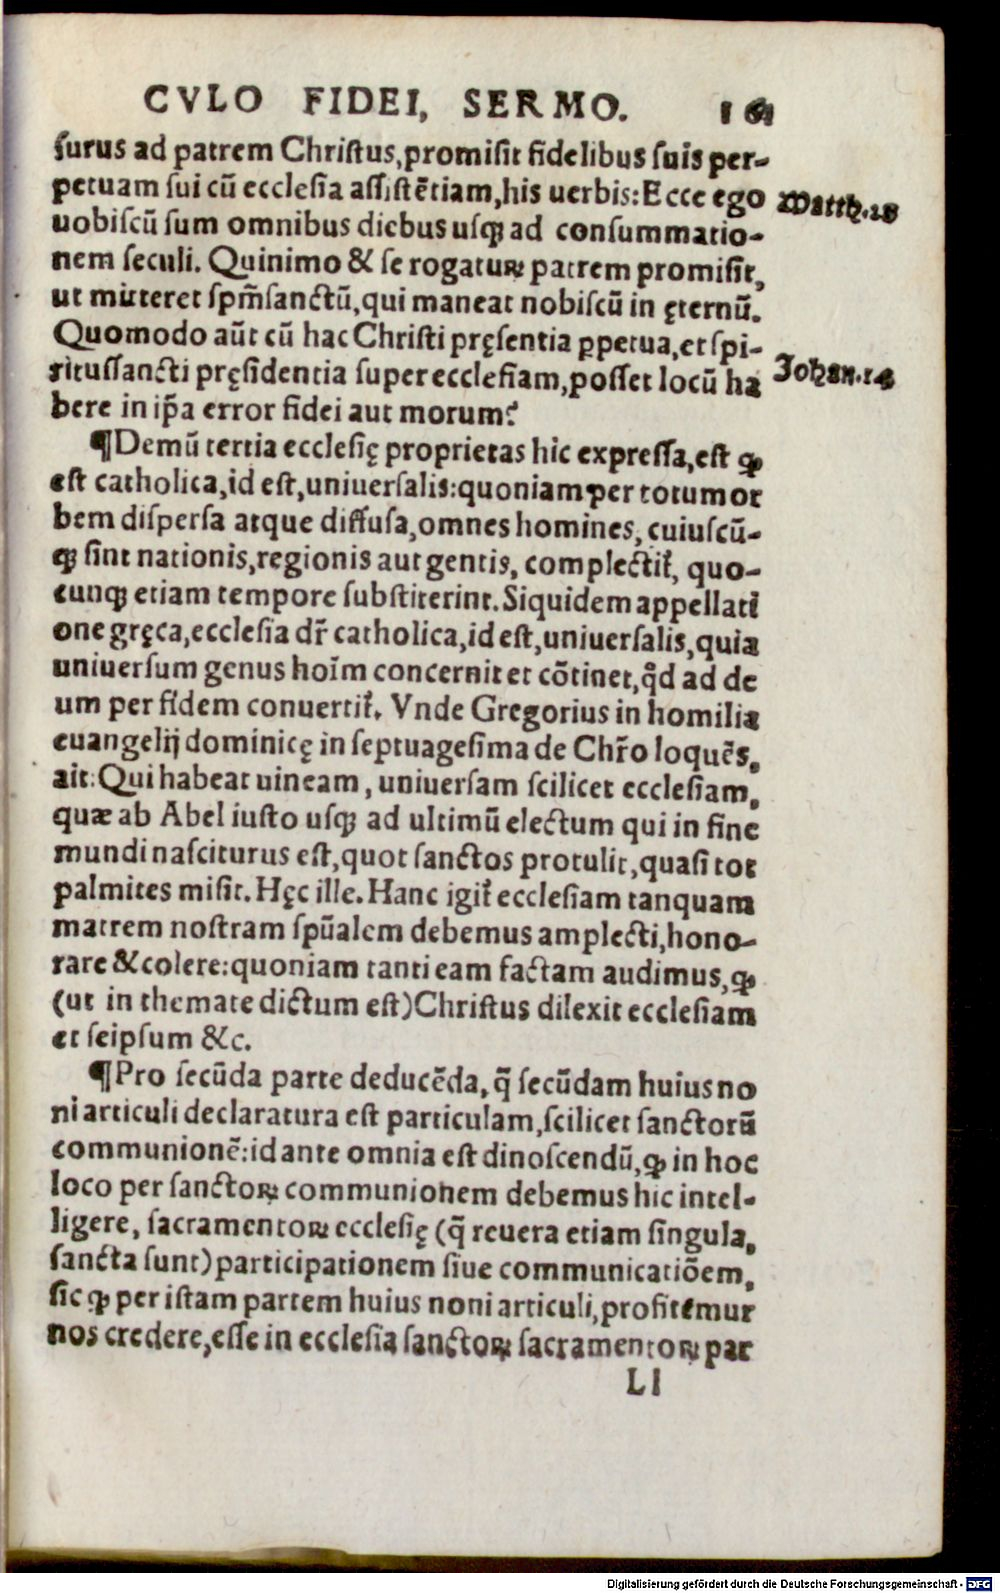 CVLO FIDEI, SERMO.
surus ad patrem Christus,promisit fidelibus suis per-
petuam sui cū ecclesia assistētiam,his uerbis:Ecce ego
Matth.28
uobiscū sum omnibus diebus usqꝫ ad consummatio-
nem seculi. Quinimo & se rogaturꝝ patrem promisit,
ut mitteret spm̄sanctū,qui maneat nobiscū in ęternū.
Quomodo aūt cū hac Christi pręsentia ꝑpetua,et spi-
ritussancti pręsidentia super ecclesiam,posset locū ha
Johan.14
bere in ip̄a error fidei aut morum?
¶Demū tertia ecclesię proprietas hic expressa,est ꝙ
est catholica,id est,uniuersalis:quoniam per totum or
bem dispersa atque diffusa,omnes homines, cuiuscū-
qꝫ sint nationis,regionis aut gentis, complectit᷑, quo-
cunqꝫ etiam tempore substiterint.Siquidem appellati
one gręca,ecclesia dr̄ catholica,id est,uniuersalis,quia
uniuersum genus hoīm concernit et cōtinet,qd̄ ad de
um per fidem conuertit᷑. Vnde Gregorius in homilia
euangelij dominicę in septuagesima de Chr̄o loquēs,
ait:Qui habeat uineam, uniuersam scilicet ecclesiam,
quæ ab Abel iusto usqꝫ ad ultimū electum qui in fine
mundi nasciturus est,quot sanctos protulit,quasi tot
palmites misit. Hęc ille. Hanc igit᷑ ecclesiam tanquam
matrem nostram spūalem debemus amplecti,hono-
rare &colere:quoniam tanti eam factam audimus,ꝙ
(ut in themate dictum est)Christus dilexit ecclesiam
et seipsum &c.
¶Pro secūda parte deducēda, q̄ secūdam huius no
ni articuli declaratura est particulam,scilicet sanctorū
communionē:id ante omnia est dinoscendū,ꝙ in hoc
loco per sanctoꝝ communionem debemus hic intel-
ligere, sacramentoꝝ ecclesię (q̄ reuera etiam singula,
sancta sunt)participationem siue communicatiōem,
sic ꝙ per istam partem huius noni articuli,profitemur
nos credere,esse in ecclesia sanctoꝝ sacramentoꝝ par
Ll
Digitalisierung gefördert durch die Deutsche Forschungsgemeinschaft - DFG